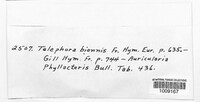 2507. Telephora biennis Fr. Hym. Eur. p. 635.-
Gill Hym. Fr. p. 744 - Auricularia
Phyllacteris Bull. Tab. 436.
1009167